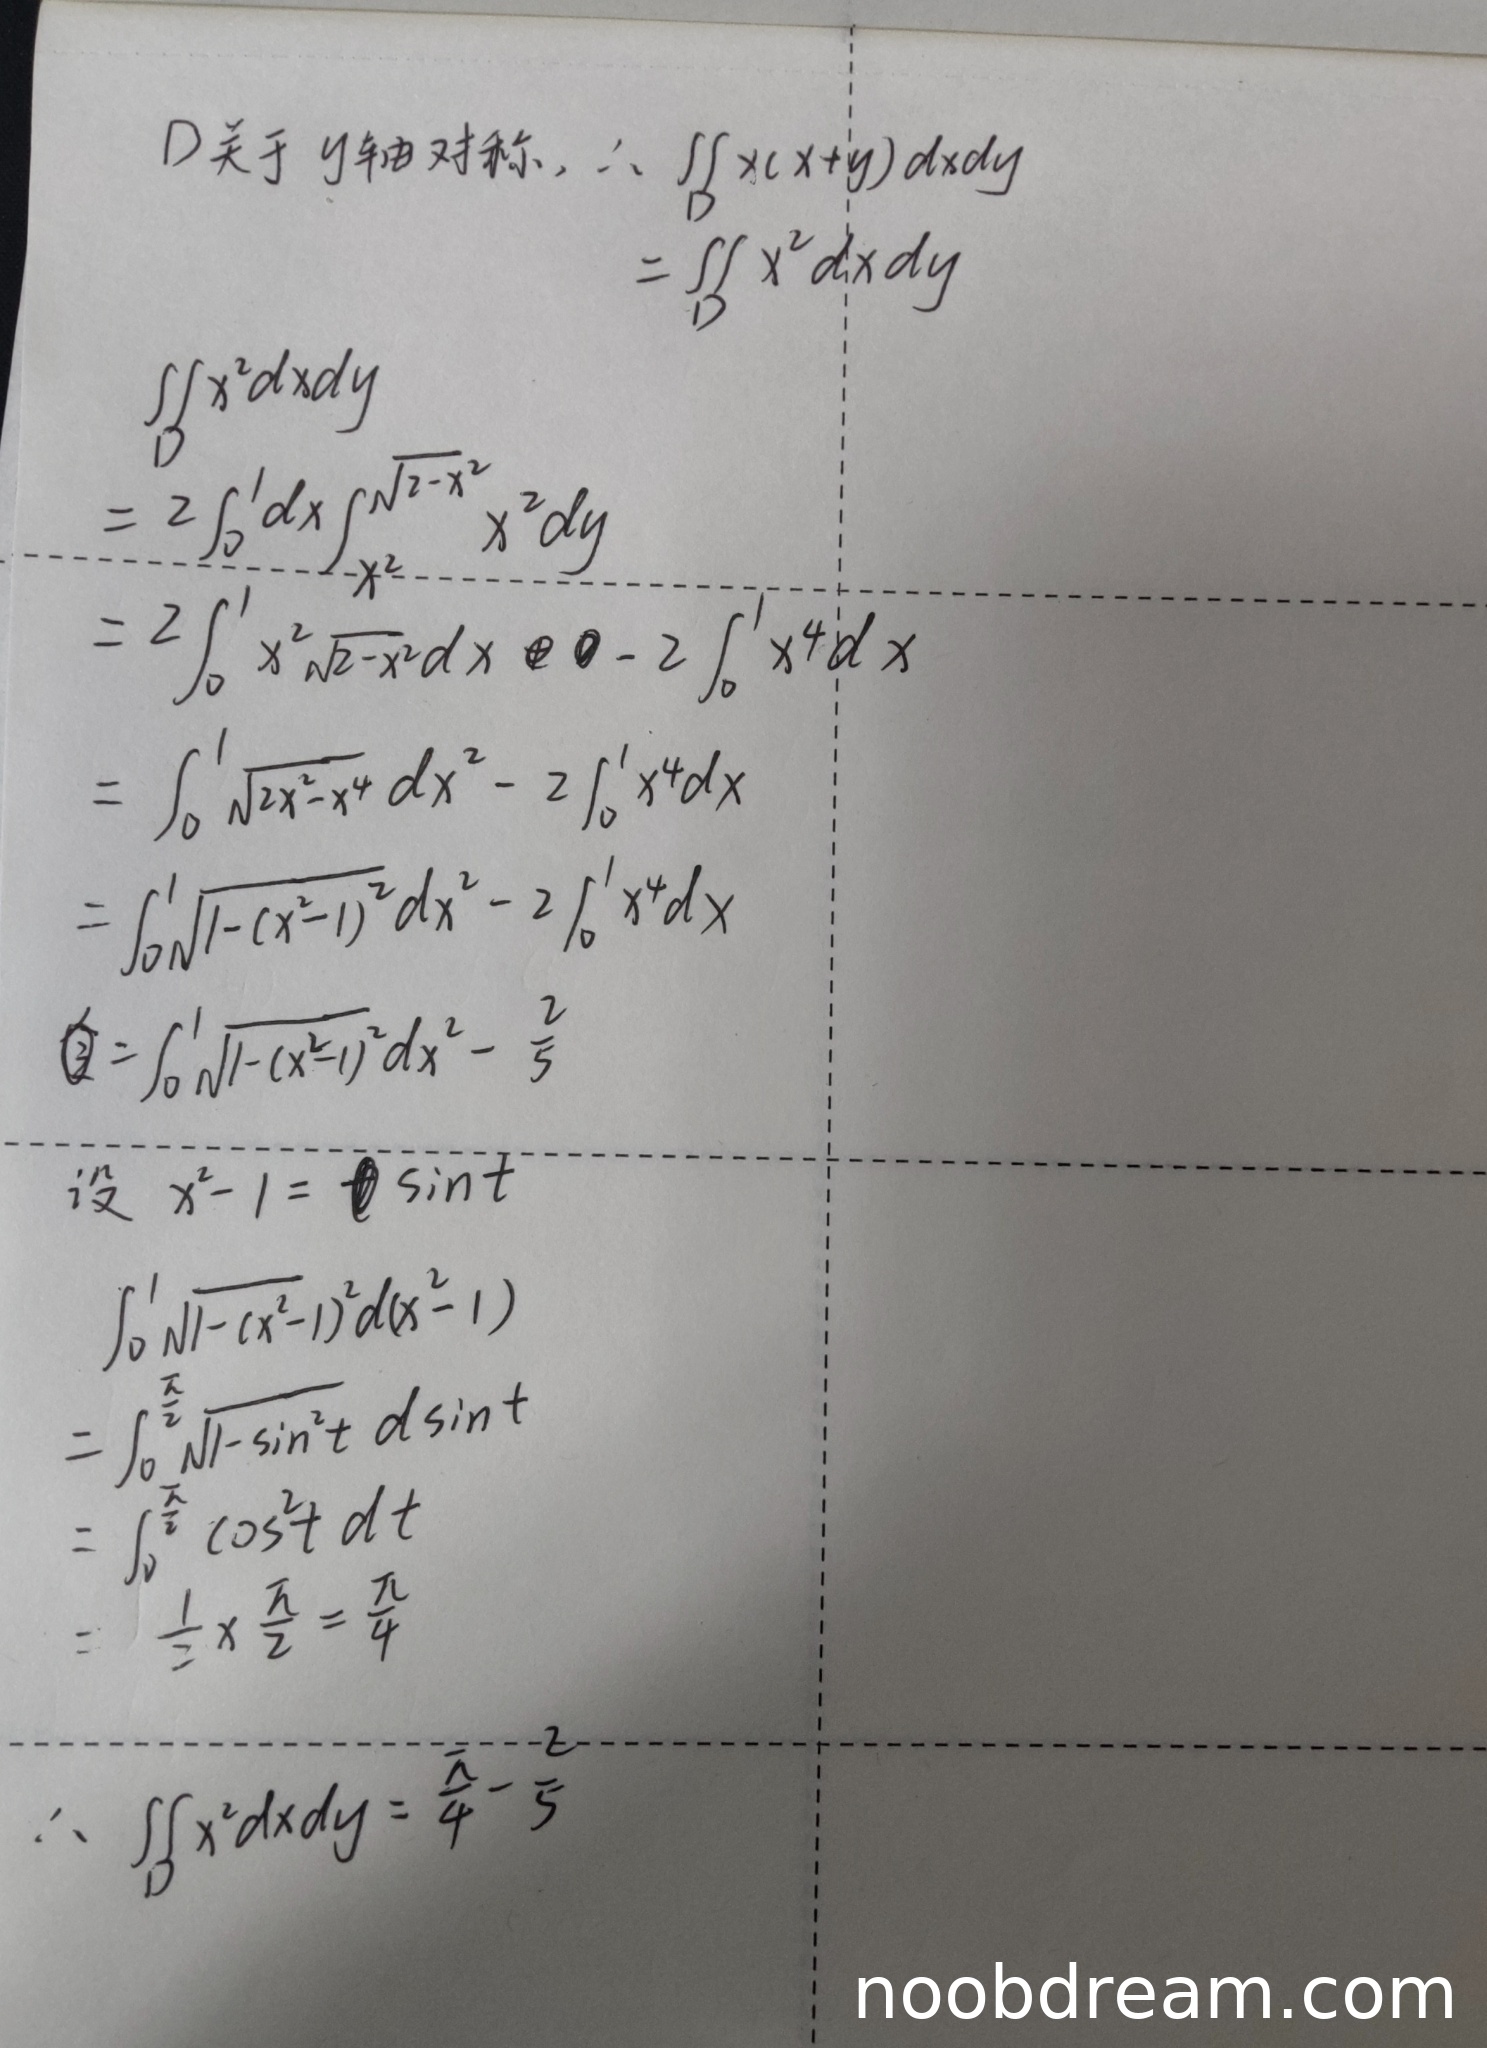 D关于y轴对称，∴ ∬_D x(x+y)dxdy
= ∬_D x²dxdy
∬_D x²dxdy
= 2∫₀¹dx∫_{x²}^{√(2-x²)} x²dy
= 2∫₀¹ x²√(2-x²)dx - 2∫₀¹x⁴dx
= ∫₀¹ √(2x²-x⁴) dx² - 2∫₀¹x⁴dx
= ∫₀¹ √(1-(x²-1)²) dx² - 2∫₀¹x⁴dx
= ∫₀¹ √(1-(x²-1)²) dx² - 2/5
设 x²-1 = sint
∫₀¹ √(1-(x²-1)²) d(x²-1)
= ∫₀^{π/2} √(1-sin²t) dsint
= ∫₀^{π/2} cos²t dt
= 1/2 × π/2 = π/4
∴ ∬_D x²dxdy = π/4 - 2/5
noobdream.com